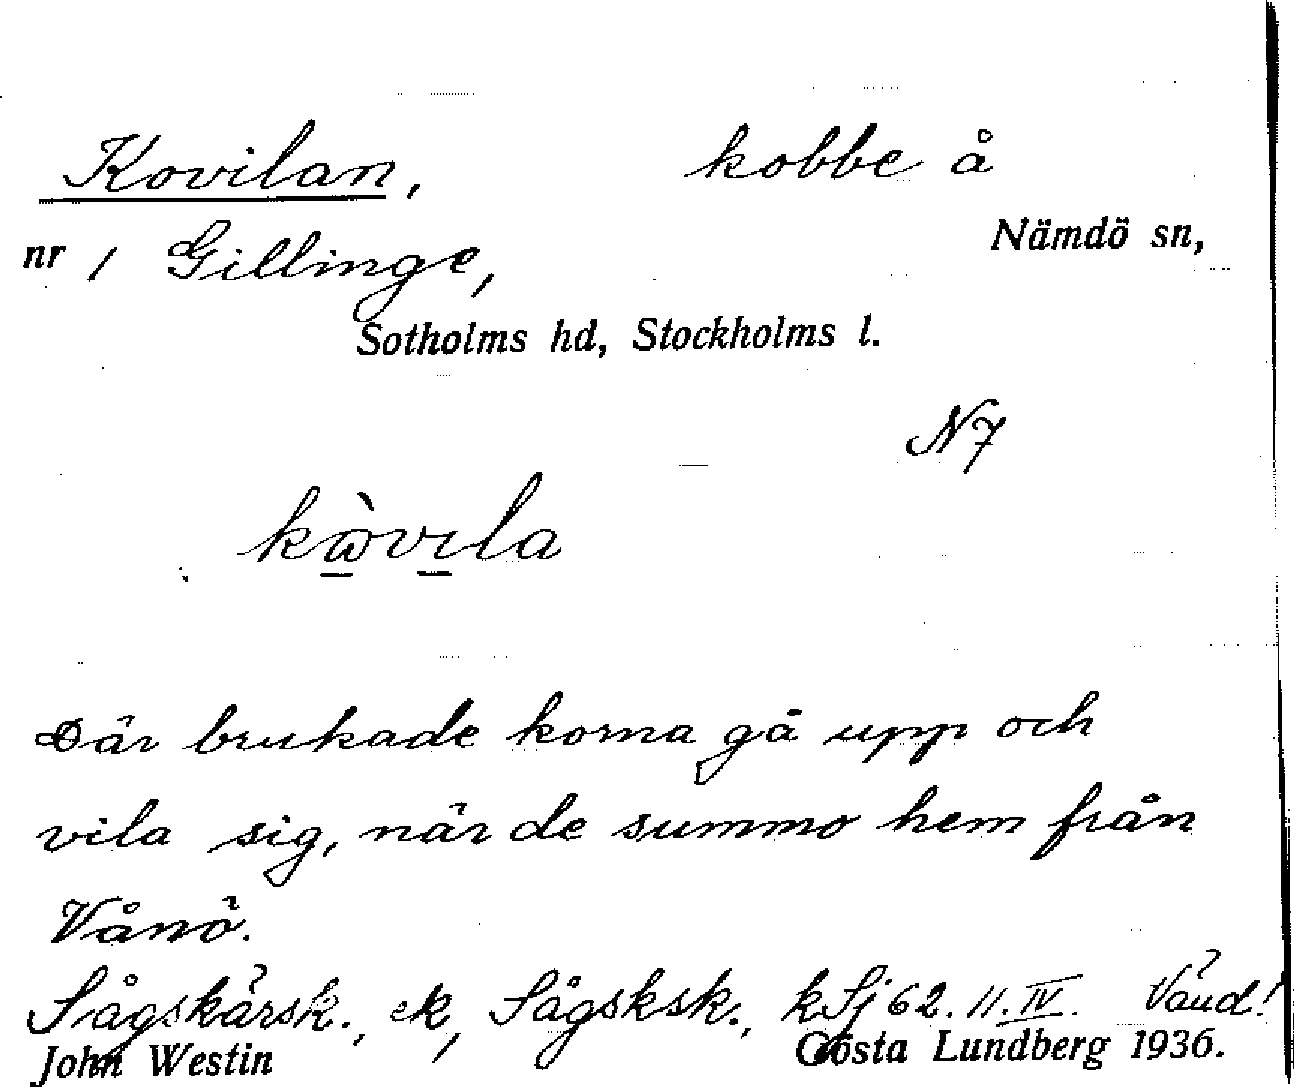 Kovilan, kobbe å
nr 1 Gillinge, Nämdö sn,
Sotholms hd, Stockholms l.
N7
kὼvıla
Där brukade korna gå upp och
vila sig, när de summo hem från
Vånö.
Sågskärsk., ek, Sågsksk., kSj 62. 11.IV. Vänd!
John Westin Gösta Lundberg 1936.